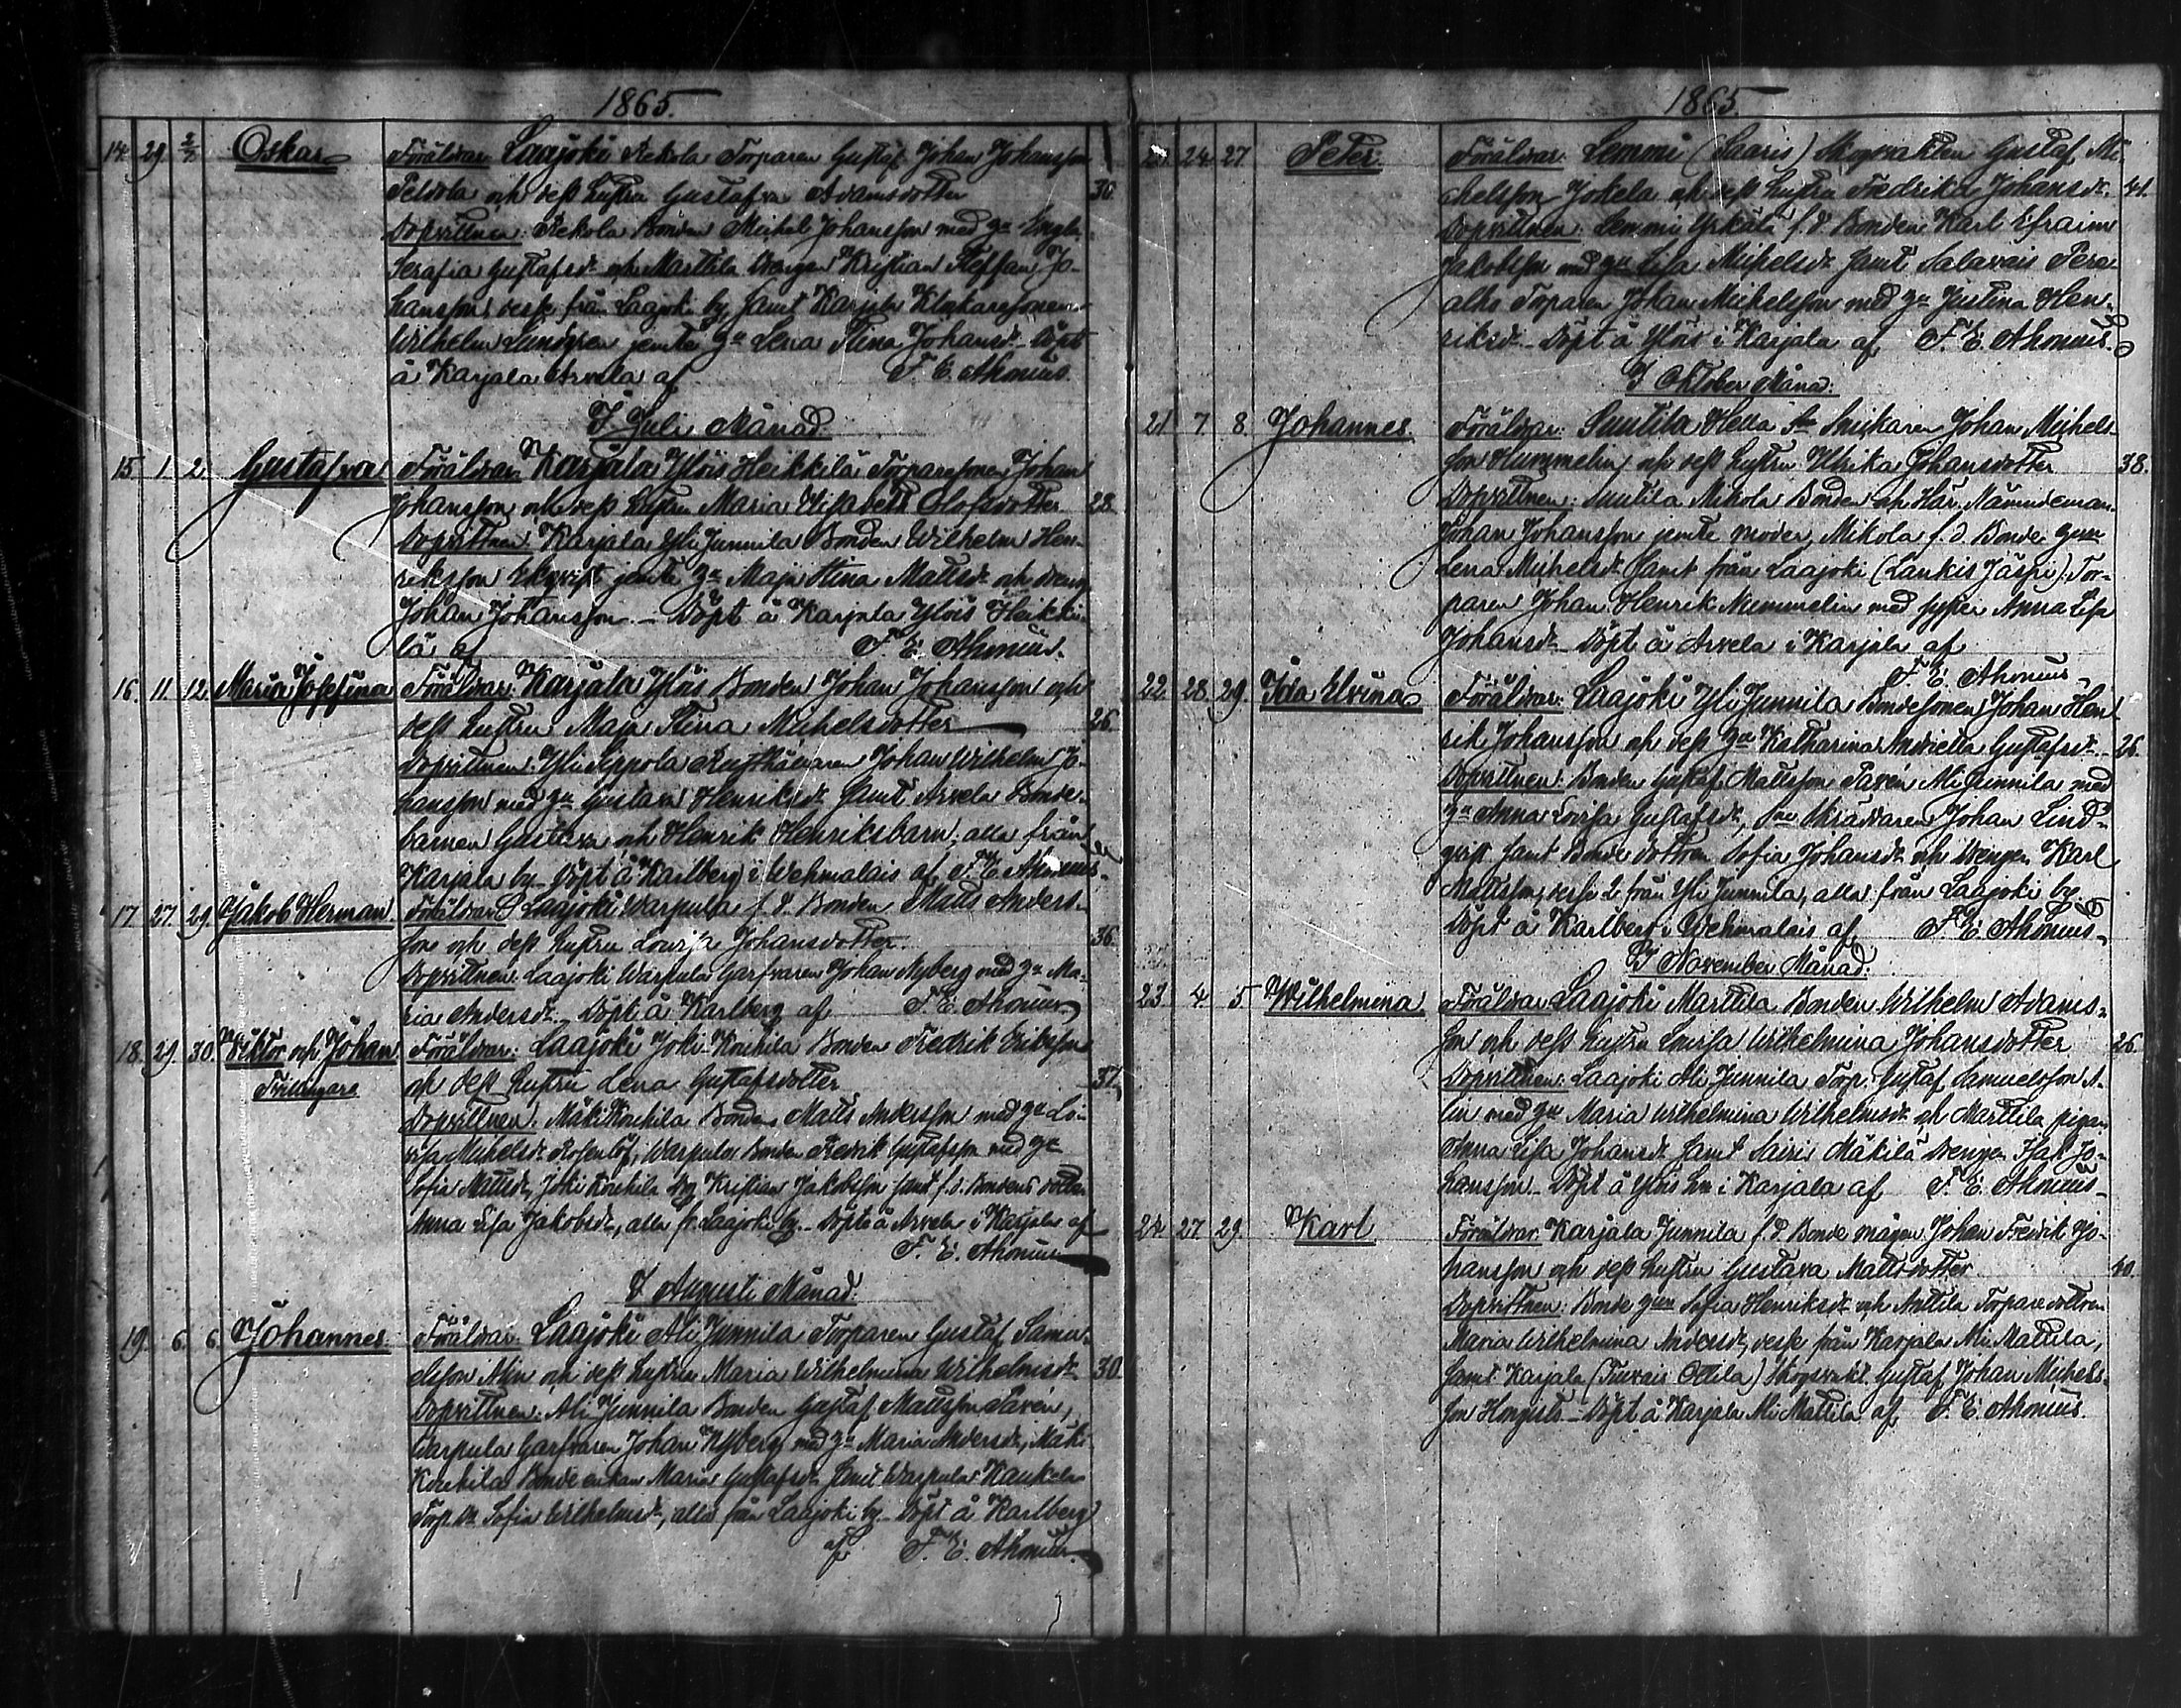 1865.
14. 29. 2/7. Oskar Föräldrar: Laajoki Rekola Torparen Gustaf Johan Johansson
Peldola och dess hustru Gustafva Adamsdotter 36.
Dopvittnen: Rekola Bonden Michel Johansson med hu Engla
Serafia Gustafsdr och Marttila Drengen Kristian Steffan Jo-
hansson, desse från Laajoki by samt Karjala Klockaresonen
Wilhelm Lundgren jemte hu Lena Stina Johansdr. Döpt
å Karjala Arvela af F. E. Ahonius.
I Juli Månad.
15. 1. 2. Gustafva Föräldrar: Karjala Ylöis Heikkilä Torparesonen Johan
Johansson och dess hustru Maria Elisabeth Olofsdotter 28.
Dopvittnen: Karjala Yli Junnila Bonden Wilhelm Hen-
riksson jemte hu Maja Stina Mattsdr och dreng
Johan Johansson. – Döpt å Karjala Ylöis Heikki-
lä af F. E. Ahonius.
16. 11. 12. Maria Josefina Föräldrar: Karjala Ylöis Bonden Johan Johansson och
dess hustru Maja Stina Michelsdotter 26.
Dopvittnen: Yli Seppola Rusthållaren Johan Wilhelm Jo-
hansson med hu Gustava Henriksdr samt Arvela Bonde-
barnen Gustava och Henrik Henriksbarn, alla från
Karjala by. Döpt å Karlberg i Wehmalais af F. E. Ahonius.
17. 27. 29. Jakob Herman Föräldrar: Laajoki Warpula f. d. Bonden Matts Anders-
son och dess hustru Lovisa Johansdotter. 36.
Dopvittnen: Laajoki Warpula Garfvaren Johan Nyberg med hu Ma-
ria Andersdr. – Döpt å Karlberg af F. E. Ahonius.
18. 29. 30. Viktor och Johan Föräldrar: Laajoki Joki-Koukila Bonden Fredrik Eriksson
Tvillingar och dess hustru Lena Gustafsdotter 37.
Dopvittnen: Mäki Koukila Bonden Matts Andersson med hu Lo-
visa Michelsdr Rosenlöf, Warpula Bonden Fredrik Gustafsson med hu
Sofia Mattsdr, Joki Koukila Drg Kristian Jakobsson samt f. d. Bondens dotter
Anna Lisa Jakobsdr, alla fr. Laajoki by. – Döpta å Arvela i Karjala af
F. E. Ahonius
I Augusti Månad.
19. 6. 6. Johannes Föräldrar: Laajoki Ali Junnila Torparen Gustaf Samu-
elsson Alin och dess hustru Maria Wilhelmina Wilhelmsdr 30.
Dopvittnen: Ali Junnila Bonden Gustaf Mattsson Pavén,
Warpula Garfvaren Johan Nyberg med hu Maria Andersdr, Mäki
Koukila Bonde enkan Maria Gustafsdr samt Warpula Kaukela
Torp. dr Sofia Wilhelmsdr, alla från Laajoki by. Döpt å Karlberg
af F. E. Ahonius.
1865.
24. 27. Peter. Föräldrar: Lemmi (Saaris) Skogvakten Gustaf Mi-
chelsson Jokela och dess hustru Fredrika Johansdr. 41.
Dopvittnen: Lemmi Yrkälä f. d. Bonden Karl Efraim
Jakobsson med hu Lisa Michelsdr samt Salavais Pera-
alho Torparen Johan Michelsson med hu Justina Hen-
riksdr. Döpt å Ylöis i Karjala af F. E. Ahonius.
I Oktober Månad.
21. 7. 8. Johannes. Föräldrar: Suutila Hella Snickaren Johan Michels-
son Hummelin och dess hustru Ulrika Johansdotter 38.
Dopvittnen: Suutila Mikola Bonden och Här. Nämndeman.
Johan Johansson jemte moder, Mikola f. d. Bonde hu
Lena Michelsdr samt från Laajoki (Lankis Jäspi) Tor-
paren Johan Henrik Nummelin med syster Anna Lisa
Johansdr. Döpt å Arvela i Karjala af
F. E. Ahonius.
22. 28. 29. Ida Elvina Föräldrar: Laajoki Yli Junnila Bondesonen Johan Hen-
rik Johansson och dess hu Katharina Andrietta Gustafsdr. 26.
Dopvittnen: Bonden Gustaf Mattsson Pavén Ali Junnila med
hu Anna Lovisa Gustafsdr, Skräddaren Johan Lind-
qvist samt Bonde dottren Sofia Johansdr och drengen Karl
Mattsson, desse 2 från Yli Junnila, alla från Laajoki by.
Döpt å Karlberg i Wehmalais af F. E. Ahonius.
I November Månad.
23. 4. 5. Wilhelmina. Föräldrar: Laajoki Marttila Bonden Wilhelm Adams-
son och dess hustru Lovisa Wilhelmina Johansdotter 26.
Dopvittnen: Laajoki Ali Junnila Torp. Gustaf Samuelsson A-
lin med hu Maria Wilhelmina Wilhelmsdr och Marttila pigan
Anna Lisa Johansdr samt Sairis Mäkilä Drengen Isak Jo-
hansson. – Döpt å Ylöis hn i Karjala af F. E. Ahonius.
24. 27. 29. Karl Föräldrar: Karjala Junnila f. d. Bonde mågen Johan Fredrik Jo-
hansson och dess hustru Gustava Mattsdotter 40.
Dopvittnen: Bonde hu Sofia Henriksdr och Anttila Torparedottren
Maria Wilhelmina Andersdr, desse från Karjala Ali Mattila,
samt Karjala (Tuvais Ottila) Skogsvakt. Gustaf Johan Michels-
son Döpt å Karjala Ali Mattila af F. E. Ahonius.